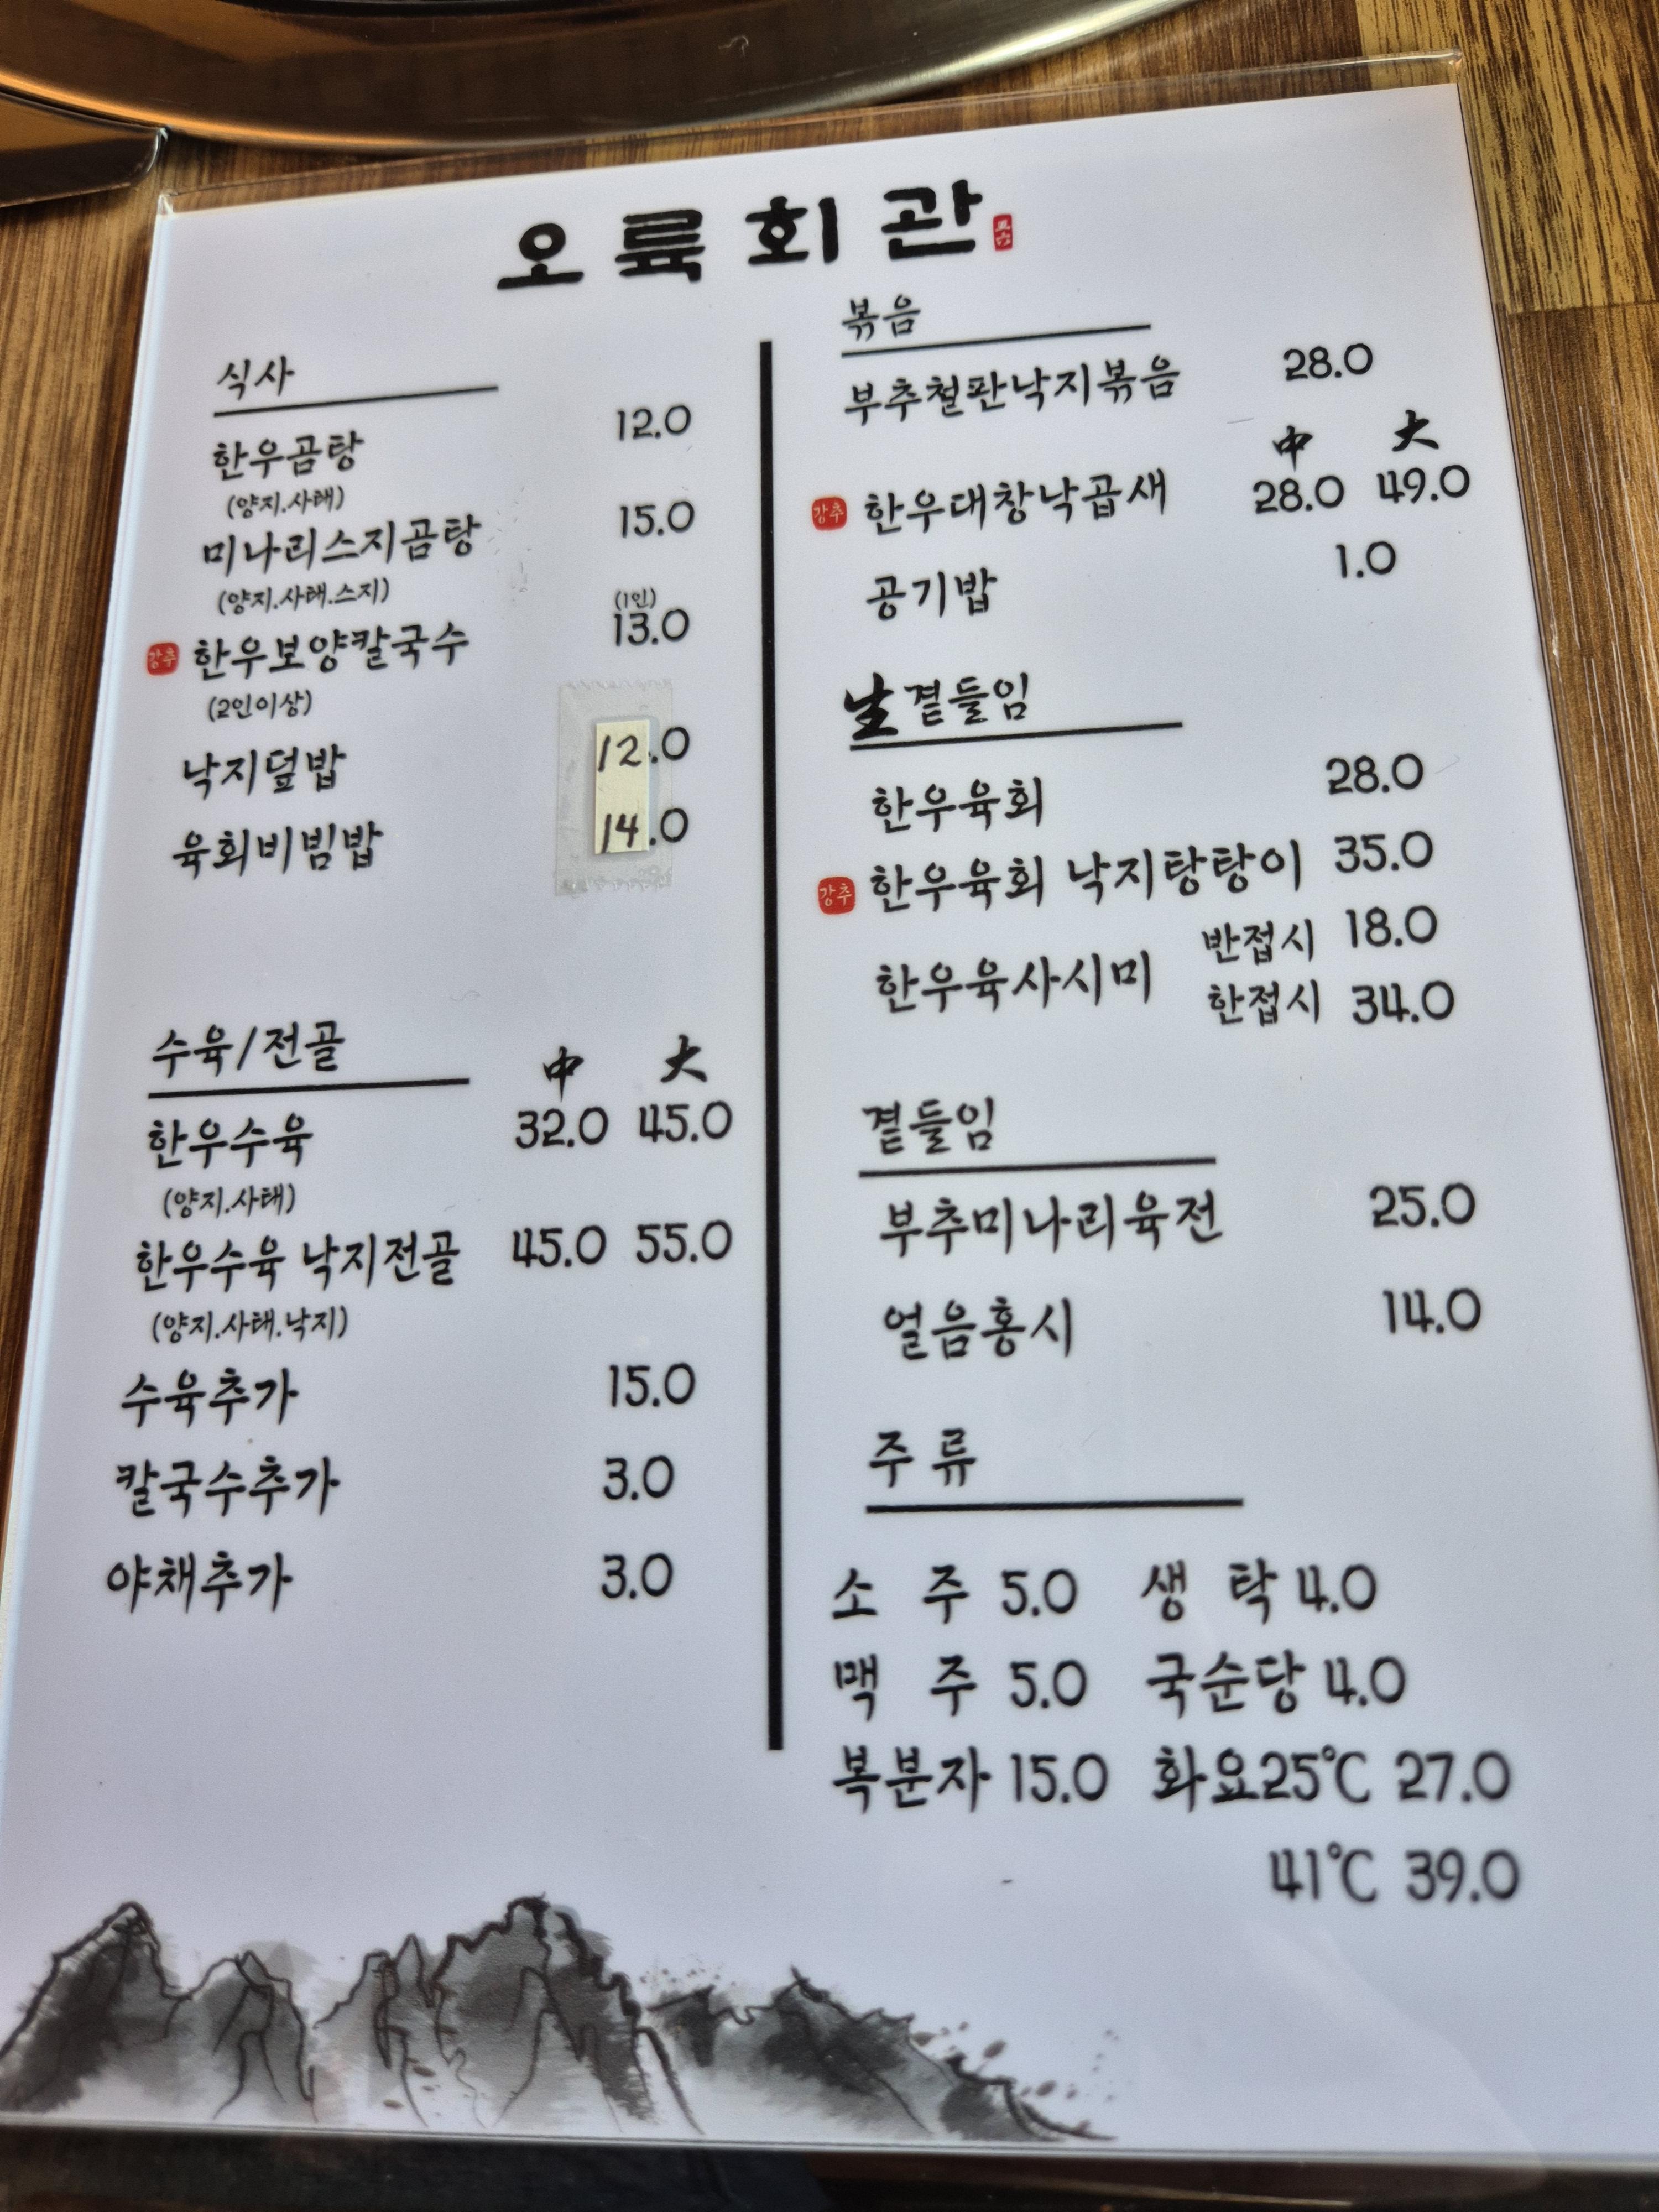 오륙회관 五六
식사
한우곰탕 12.0
(양지.사태)
미나리스지곰탕 15.0
(양지.사태.스지)
(1인)
강추 한우보양칼국수 13.0
(2인이상)
낙지덮밥 12.0
육회비빔밥 14.0
수육/전골 中 大
한우수육 32.0 45.0
(양지.사태)
한우수육 낙지전골 45.0 55.0
(양지.사태.낙지)
수육추가 15.0
칼국수추가 3.0
야채추가 3.0
볶음
부추철판낙지볶음 28.0
中 大
강추 한우대창낙곱새 28.0 49.0
공기밥 1.0
生곁들임
한우육회 28.0
강추 한우육회 낙지탕탕이 35.0
한우육사시미 반접시 18.0
한접시 34.0
곁들임
부추미나리육전 25.0
얼음홍시 14.0
주류
소 주 5.0 생 탁 4.0
맥 주 5.0 국순당 4.0
복분자 15.0 화요25℃ 27.0
41℃ 39.0